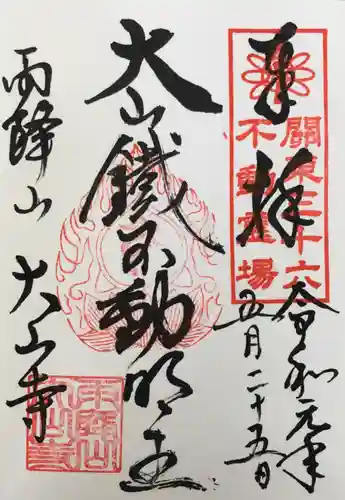 奉拝
關東三十六
不動霊場
令和元年
五月二十五日
大山鐵不動明王
雨降山
大山寺
雨降山
大山寺